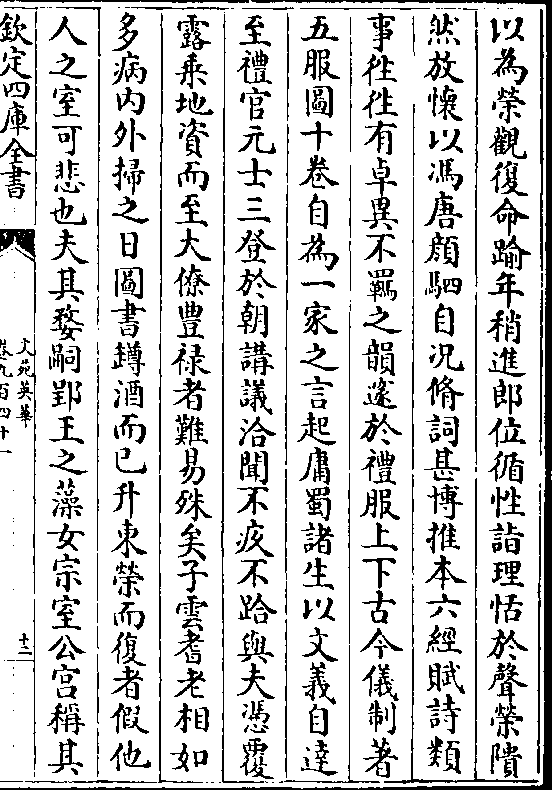 以為榮觀復命踰年稍進郎位循性詣理恬於聲榮隤
然放懷以馮唐顔駟自况脩詞甚博推本六經賦詩類
事徃徃有卓異不羈之韻邃於禮服上下古今儀制著
五服圖十卷自為一家之言起庸蜀諸生以文義自達
至禮官元士三登於朝講議洽聞不疚不跲與夫憑覆
露乗地資而至大僚豊禄者難易殊矣子雲耆老相如
多病内外掃之日圖書罇酒而已升東榮而復者假他
人之室可悲也夫其婺嗣郢王之藻女宗室公宫稱其
欽定四庫全書
文苑英華
卷九百四十一
十二